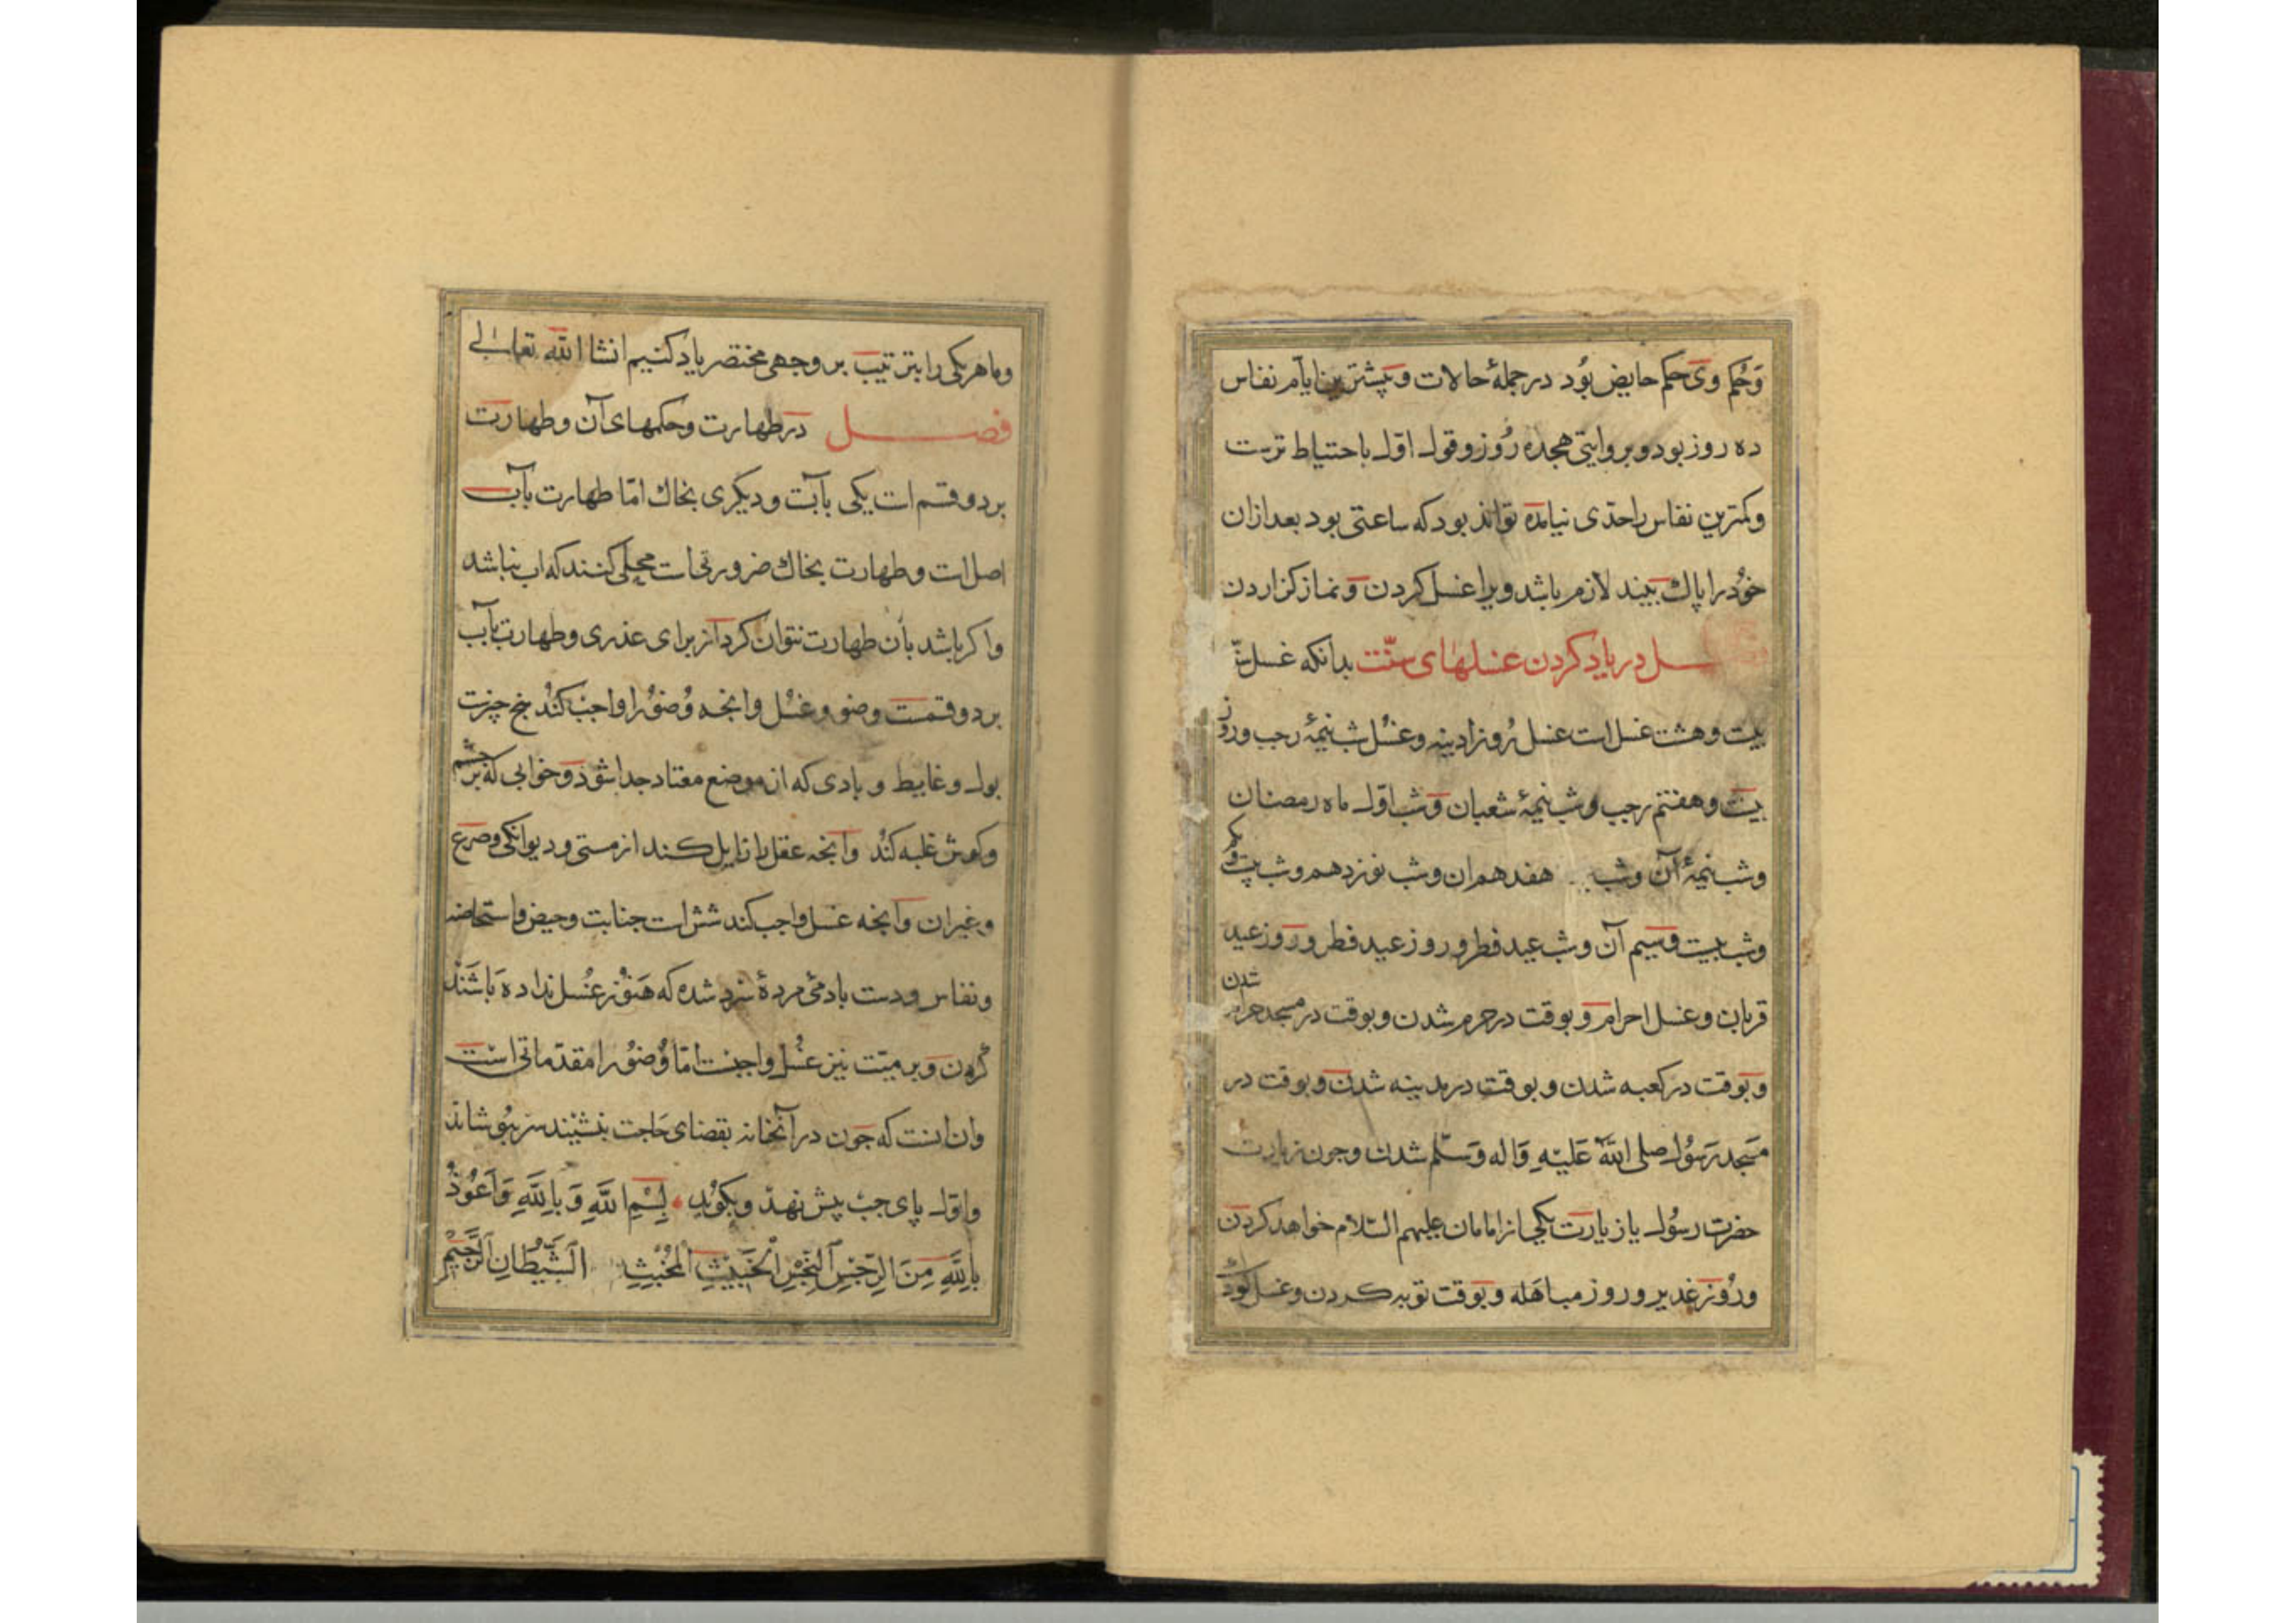 وَحُكم وىَ حكم حايض بُود درجملهٔ حالات وبيشترين ايام نفاس
ده روز بود وبروايتى هجده رُوز وقول اوّل باحتياط ترست
وكمترين نفاس راحدّى نيامده تواند بود كه ساعتى بود بعد ازان
خُود را پاك بيند لازم باشد ويرا غسل كردن ونماز كزاردن
ـل درياد كردن غسلهاى سنّت بدانكه غسل سنّ
بيت وهشت غسل است غسل رُوز ادينه وغسُل شب نيمهٔ رجب وروز
بيت وهفتم رجب وشب نيمهٔ شعبان وشب اوّل ماه رمضان
وشب نيمهٔ آن وشب هفدهم ان وشب نوزدهم وشب بيت ويكم
وشب بيت وسيم آن وشب عيد فطر وروز عيد فطر وروز عيد
قربان وغسل احرام وبوقت درحرم شدن وبوقت درمسجد حرام شدن
وبوقت در كعبه شدن وبوقت درمدينه شدن وبوقت در
مَسجد رَسُول صلى اللهُ عَليْهِ وَاله وَسَلّم شدن وجون زيارت
حضرت رسُول يا زيارت يكى از امامان عليهم السّلام خواهد كردن
ورُوز غدير وروز مباهَله وبوقت توبه كردن وغسل كودك
وما هريكى را بترتيب بر وجهى مختصر ياد كنيم انشا الله تعالى
فصــل درطهارت وحكمهاى آن وطهارت
بر دو قسم است يكى بآبست وديكرى بخاك امّا طهارت بآب
اصل است وطهارت بخاك ضرورتى است محلى كنند كه اب نباشد
واكر باشد بآن طهارت نتوان كرد از براى عذرى وطهارت بآب
بر دو قسمست وضو وغسُل وانچه وُضوُ را واجب كُند پنج چيزست
بول وغايط وبادى كه از موضع معتاد جدا شود وخوابى كه بر چشم
وكوش غلبه كند وانچه عقل را زايل كند از مستى وديوانكى وصرع
وغيران وانچه غسل واجب كند شش است جنابت وحيض واستحاضه
ونفاس ودست بادمى مردهٔ سرد شده كه هَنوُز غُسل نداده باشَند
كردن وبر ميّت نيز غُسل واجبست امّا وُضوُ را مقدّماتى است
وان انست كه جون در آنخانه بقضاى حَاجت بنشيند سر بپوشاند
واوّل پاى چپ پيش نهد وبكويد بِسْمِ اللَّهِ وَبِاللَّهِ وَاَعُوْذُ
بِاللَّهِ مِنَ الرِّجْسِ النَّجِسِ الخَبِيْثِ المُخْبِثِ الشَّيْطَانِ الرَّجِيْمِ